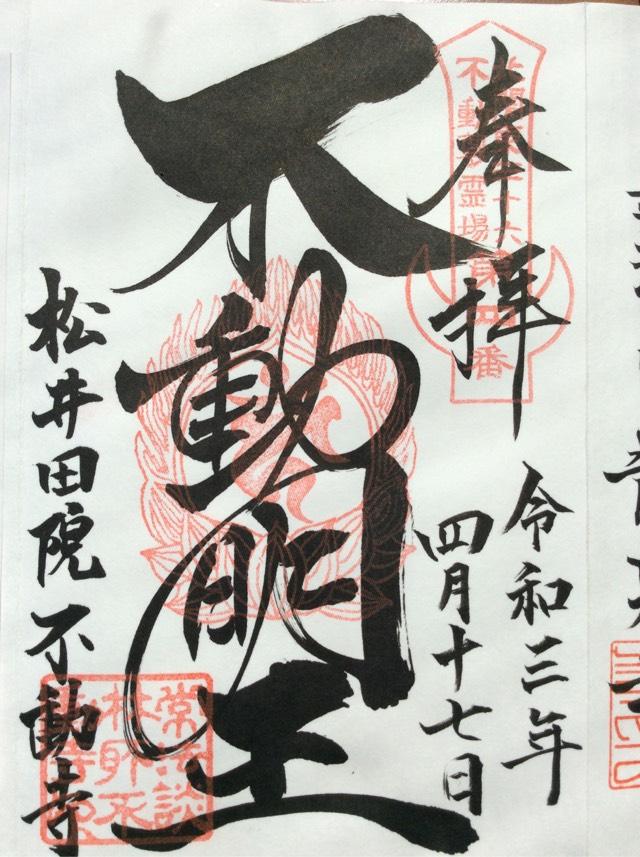 奉拝
令和三年
四月十七日
不動明王
松井田院不動寺
不動尊霊場
第四番